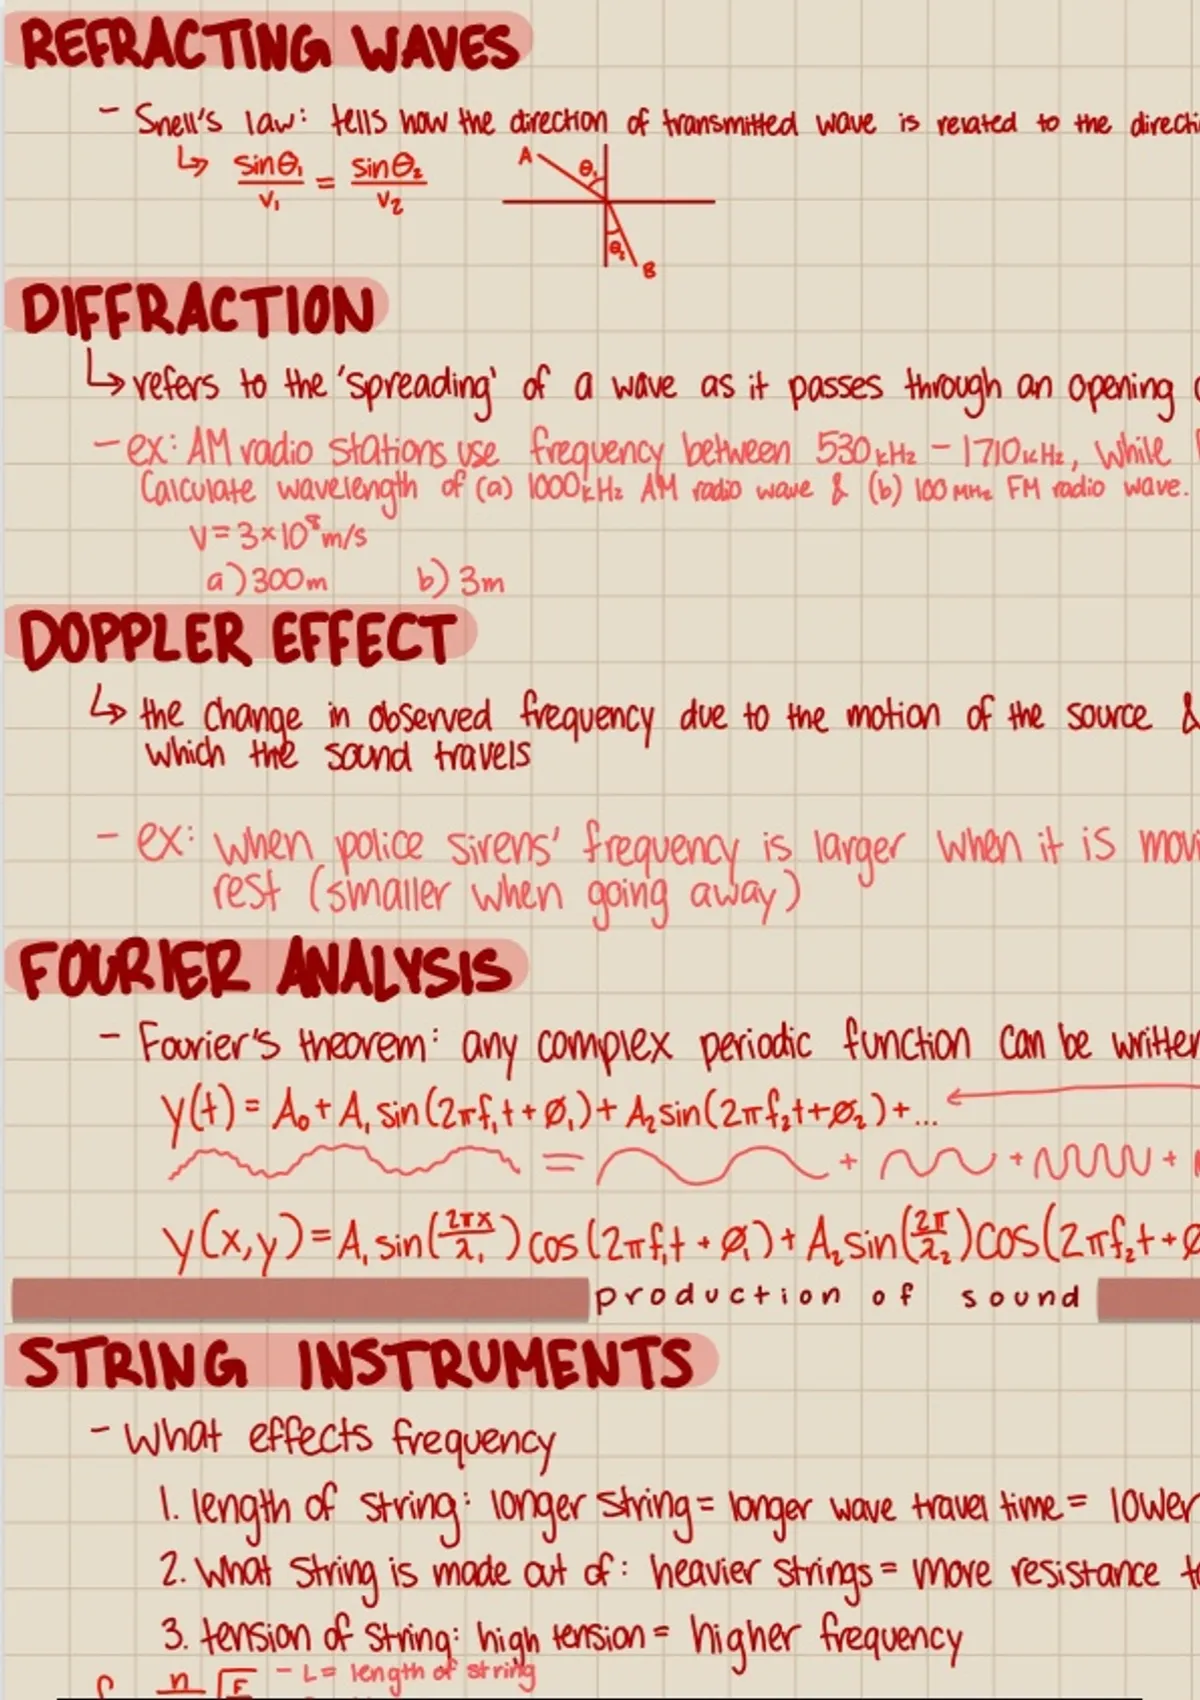 REFRACTING WAVES
- Snell's law: tells how the direction of transmitted wave is related to the directi
↳ sinθ₁/v₁ = sinθ₂/v₂
A θ₁
θ₂ B
DIFFRACTION
↳ refers to the 'spreading' of a wave as it passes through an opening
- ex: AM radio stations use frequency between 530 kHz - 1710 kHz, while
Calculate wavelength of (a) 1000 kHz AM radio wave & (b) 100 MHz FM radio wave.
V = 3×10⁸ m/s
a) 300m b) 3m
DOPPLER EFFECT
↳ the change in observed frequency due to the motion of the source &
which the sound travels
- ex: when police sirens' frequency is larger when it is movi
rest (smaller when going away)
FOURIER ANALYSIS
- Fourier's theorem: any complex periodic function can be written
y(t) = A₀ + A₁ sin(2πf₁t + Ø₁) + A₂ sin(2πf₂t + Ø₂) + ...
= + + +
y(x,y) = A₁ sin(2πx/λ₁) cos(2πf₁t + Ø₁) + A₂ sin(2π/λ₂) cos(2πf₂t + Ø
production of sound
STRING INSTRUMENTS
- What effects frequency
1. length of string: longer string = longer wave travel time = lower
2. What string is made out of: heavier strings = more resistance to
3. tension of string: high tension = higher frequency
n √F - L = length of string